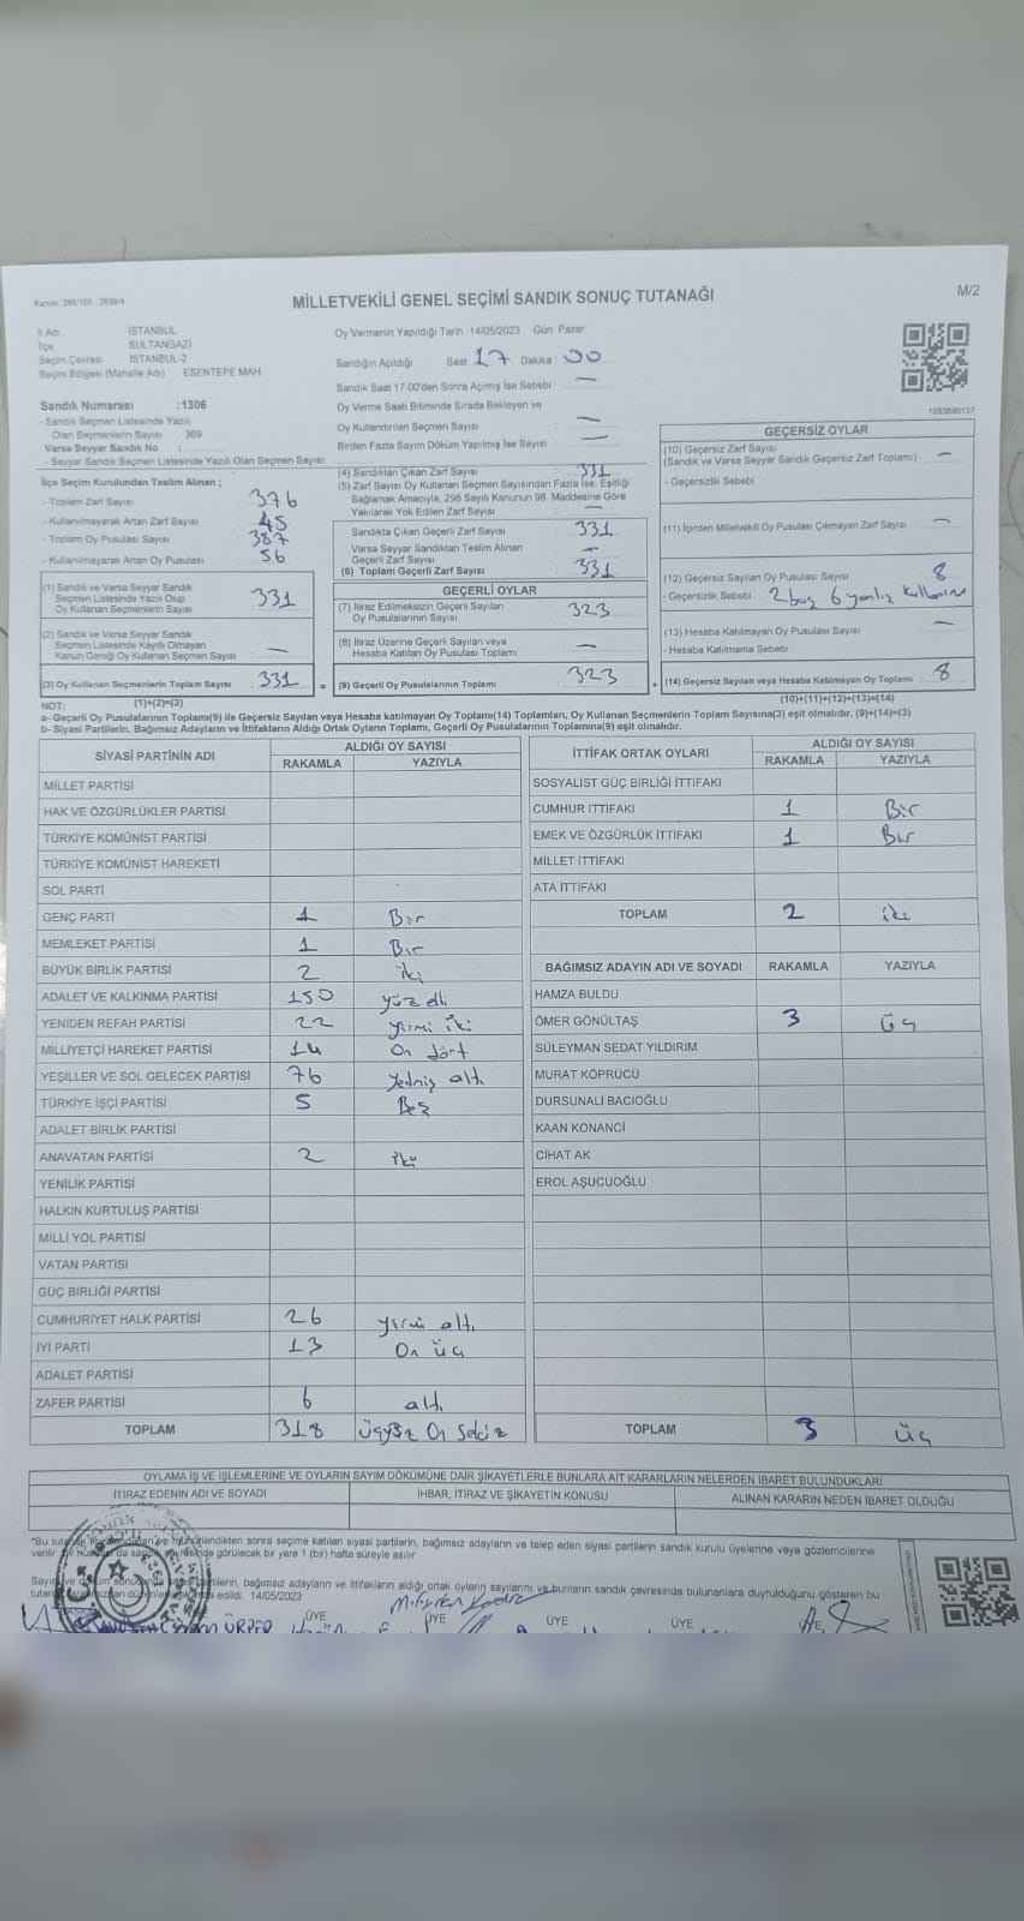 MİLLETVEKİLİ GENEL SEÇİMİ SANDIK SONUÇ TUTANAĞI
M/2
İl Adı : İSTANBUL
İlçe SULTANGAZİ
Seçim Çevresi İSTANBUL-2
Seçim Bölgesi (Mahalle Adı) ESENTEPE MAH
Sandık Numarası :1306
- Sandık Seçmen Listesinde Yazılı
Olan Seçmenlerin Sayısı 369
Varsa Seyyar Sandık No :
- Seyyar Sandık Seçmen Listesinde Yazılı Olan Seçmen Sayısı:
İlçe Seçim Kurulundan Teslim Alınan ;
- Toplam Zarf Sayısı 376
- Kullanılmayarak Artan Zarf Sayısı 45
- Toplam Oy Pusulası Sayısı 387
- Kullanılmayarak Artan Oy Pusulası 56
(1) Sandık ve Varsa Seyyar Sandık
Seçmen Listesinde Yazılı Olup
Oy Kullanan Seçmenlerin Sayısı 331
(2) Sandık ve Varsa Seyyar Sandık
Seçmen Listesinde Kayıtlı Olmayan
Kanun Gereği Oy Kullanan Seçmen Sayısı —
(3) Oy Kullanan Seçmenlerin Toplam Sayısı 331
Oy Vermenin Yapıldığı Tarih :14/05/2023 Gün: Pazar
Sandığın Açıldığı Saat 17 Dakika : 00
Sandık Saat 17:00'den Sonra Açılmış İse Sebebi : —
Oy Verme Saati Bitiminde Sırada Bekleyen ve
Oy Kullandırılan Seçmen Sayısı —
Birden Fazla Sayım Döküm Yapılmış İse Sayısı —
(4) Sandıktan Çıkan Zarf Sayısı 331
(5) Zarf Sayısı Oy Kullanan Seçmen Sayısından Fazla İse, Eşitliği
Sağlamak Amacıyla, 298 Sayılı Kanunun 98. Maddesine Göre
Yakılarak Yok Edilen Zarf Sayısı —
Sandıkta Çıkan Geçerli Zarf Sayısı 331
Varsa Seyyar Sandıktan Teslim Alınan
Geçerli Zarf Sayısı —
(6) Toplam Geçerli Zarf Sayısı 331
GEÇERLİ OYLAR
(7) İtiraz Edilmeksizin Geçerli Sayılan
Oy Pusulalarının Sayısı 323
(8) İtiraz Üzerine Geçerli Sayılan veya
Hesaba Katılan Oy Pusulası Toplamı —
(9) Geçerli Oy Pusulalarının Toplamı 323
GEÇERSİZ OYLAR
(10) Geçersiz Zarf Sayısı
(Sandık ve Varsa Seyyar Sandık Geçersiz Zarf Toplamı) —
- Geçersizlik Sebebi
(11) İçinden Milletvekili Oy Pusulası Çıkmayan Zarf Sayısı —
(12) Geçersiz Sayılan Oy Pusulası Sayısı 8
- Geçersizlik Sebebi 2 boş 6 yanlış
(13) Hesaba Katılmayan Oy Pusulası Sayısı —
- Hesaba Katılmama Sebebi
(14) Geçersiz Sayılan veya Hesaba Katılmayan Oy Toplamı 8
NOT: (1)+(2)=(3) (10)+(11)+(12)+(13)=(14)
a- Geçerli Oy Pusulalarının Toplamı(9) ile Geçersiz Sayılan veya Hesaba katılmayan Oy Toplamı(14) Toplamları, Oy Kullanan Seçmenlerin Toplam Sayısına(3) eşit olmalıdır. (9)+(14)=(3)
b- Siyasi Partilerin, Bağımsız Adayların ve İttifakların Aldığı Oyların Toplamı, Geçerli Oy Pusulalarının Toplamına(9) eşit olmalıdır.
SİYASİ PARTİNİN ADI ALDIĞI OY SAYISI
RAKAMLA YAZIYLA
MİLLET PARTİSİ
HAK VE ÖZGÜRLÜKLER PARTİSİ
TÜRKİYE KOMÜNİST PARTİSİ
TÜRKİYE KOMÜNİST HAREKETİ
SOL PARTİ
GENÇ PARTİ 1 Bir
MEMLEKET PARTİSİ 1 Bir
BÜYÜK BİRLİK PARTİSİ 2 iki
ADALET VE KALKINMA PARTİSİ 150 yüz elli
YENİDEN REFAH PARTİSİ 22 yirmi iki
MİLLİYETÇİ HAREKET PARTİSİ 14 On dört
YEŞİLLER VE SOL GELECEK PARTİSİ 76 Yedmiş altı
TÜRKİYE İŞÇİ PARTİSİ 5 Beş
ADALET BİRLİK PARTİSİ
ANAVATAN PARTİSİ 2 iki
YENİLİK PARTİSİ
HALKIN KURTULUŞ PARTİSİ
MİLLİ YOL PARTİSİ
VATAN PARTİSİ
GÜÇ BİRLİĞİ PARTİSİ
CUMHURİYET HALK PARTİSİ 26 yirmi altı
İYİ PARTİ 13 On üç
ADALET PARTİSİ
ZAFER PARTİSİ 6 altı
TOPLAM 318 üçyüz On Sekiz
İTTİFAK ORTAK OYLARI ALDIĞI OY SAYISI
RAKAMLA YAZIYLA
SOSYALİST GÜÇ BİRLİĞİ İTTİFAKI
CUMHUR İTTİFAKI 1 Bir
EMEK VE ÖZGÜRLÜK İTTİFAKI 1 Bir
MİLLET İTTİFAKI
ATA İTTİFAKI
TOPLAM 2 iki
BAĞIMSIZ ADAYIN ADI VE SOYADI RAKAMLA YAZIYLA
HAMZA BULDU
ÖMER GÖNÜLTAŞ 3 üç
SÜLEYMAN SEDAT YILDIRIM
MURAT KÖPRÜCÜ
DURSUNALİ BACIOĞLU
KAAN KONANCİ
CİHAT AK
EROL AŞUCUOĞLU
TOPLAM 3 üç
OYLAMA İŞ VE İŞLEMLERİNE VE OYLARIN SAYIM DÖKÜMÜNE DAİR ŞİKAYETLERLE BUNLARA AİT KARARLARIN NELERDEN İBARET BULUNDUKLARI
İTİRAZ EDENİN ADI VE SOYADI İHBAR, İTİRAZ VE ŞİKAYETİN KONUSU ALINAN KARARIN NEDEN İBARET OLDUĞU
sonra seçime katılan siyasi partilerin, bağımsız adayların ve talep eden siyasi partilerin sandık kurulu üyelerine veya gözlemcilerine
görülecek bir yere 1 (bir) hafta süreyle asılır
bağımsız adayların ve ittifakların aldığı ortak oyların sayılarını ve bunların sandık çevresinde bulunanlara duyrulduğunu gösteren bu
edildi. 14/05/2023
ÜYE ÜYE ÜYE ÜYE